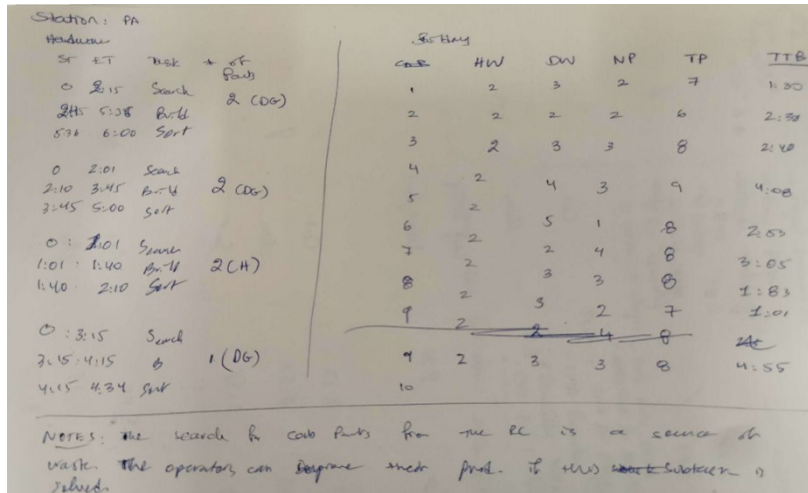 Station: PA
Hardware
ST ET Task # of Parts
0 2:15 Search
5:38 Build 2 (DG)
538 6:00 Sort
0 2:01 Search
2:10 3:45 Build 2 (DG)
3:45 5:00 Sort
0 : 1:01 Search
1:01 : 1:40 Build 2 (H)
1:40 2:10 Sort
0 : 3:15 Search
3:15 - 4:15 B 1 (DG)
4:15 4:34 Sort
HW DW NP TP TTB
1 2 3 2 7 1:30
2 2 2 2 6 2:30
3 2 3 3 8 2:40
4 2 4 3 9 4:08
5 2 5 1 8 2:53
6 2 2 4 8 3:05
7 2 3 3 8 1:83
8 2 3 2 7 1:01
9 2 2 4 8
9 2 3 3 8 4:55
10
NOTES: The search for cab Parts from the RC is a source of
waste. The operators can improve their prod. if this is
solved.